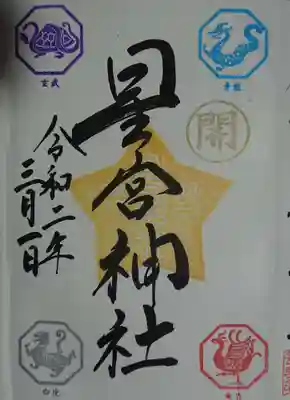 玄武
青龍
星宮神社
令和二年
三月一日
白虎
朱雀